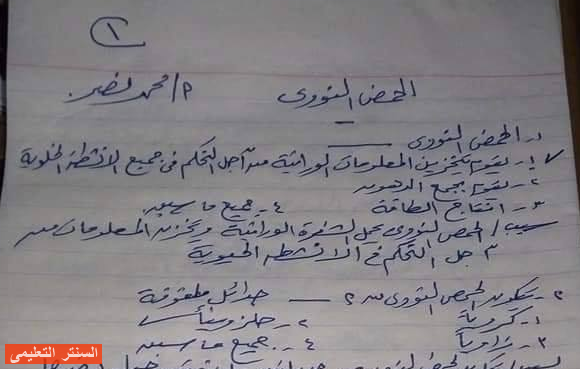 ١
الحمض النووى م/محمد نصر
١- الحمض النووى ــــــ
١- يقوم بتخزين المعلومات الوراثية من أجل التحكم فى جميع الانشطة الخلوية
٢- يقوم بجمع الدهون
٣- انتاج الطاقة ٤- جميع ما سبق
سبب/ الحمض النووى يحمل الشفرة الوراثية ويخزن المعلومات من
اجل التحكم فى الانشطة الحيوية
٢- يتكون الحمض النووى من ٢ ــــ جدائل ملفوفة
١- كروياً ٢- حلزونياً
٣- زاوياً ٤- جميع ما سبق
السنتر التعليمى